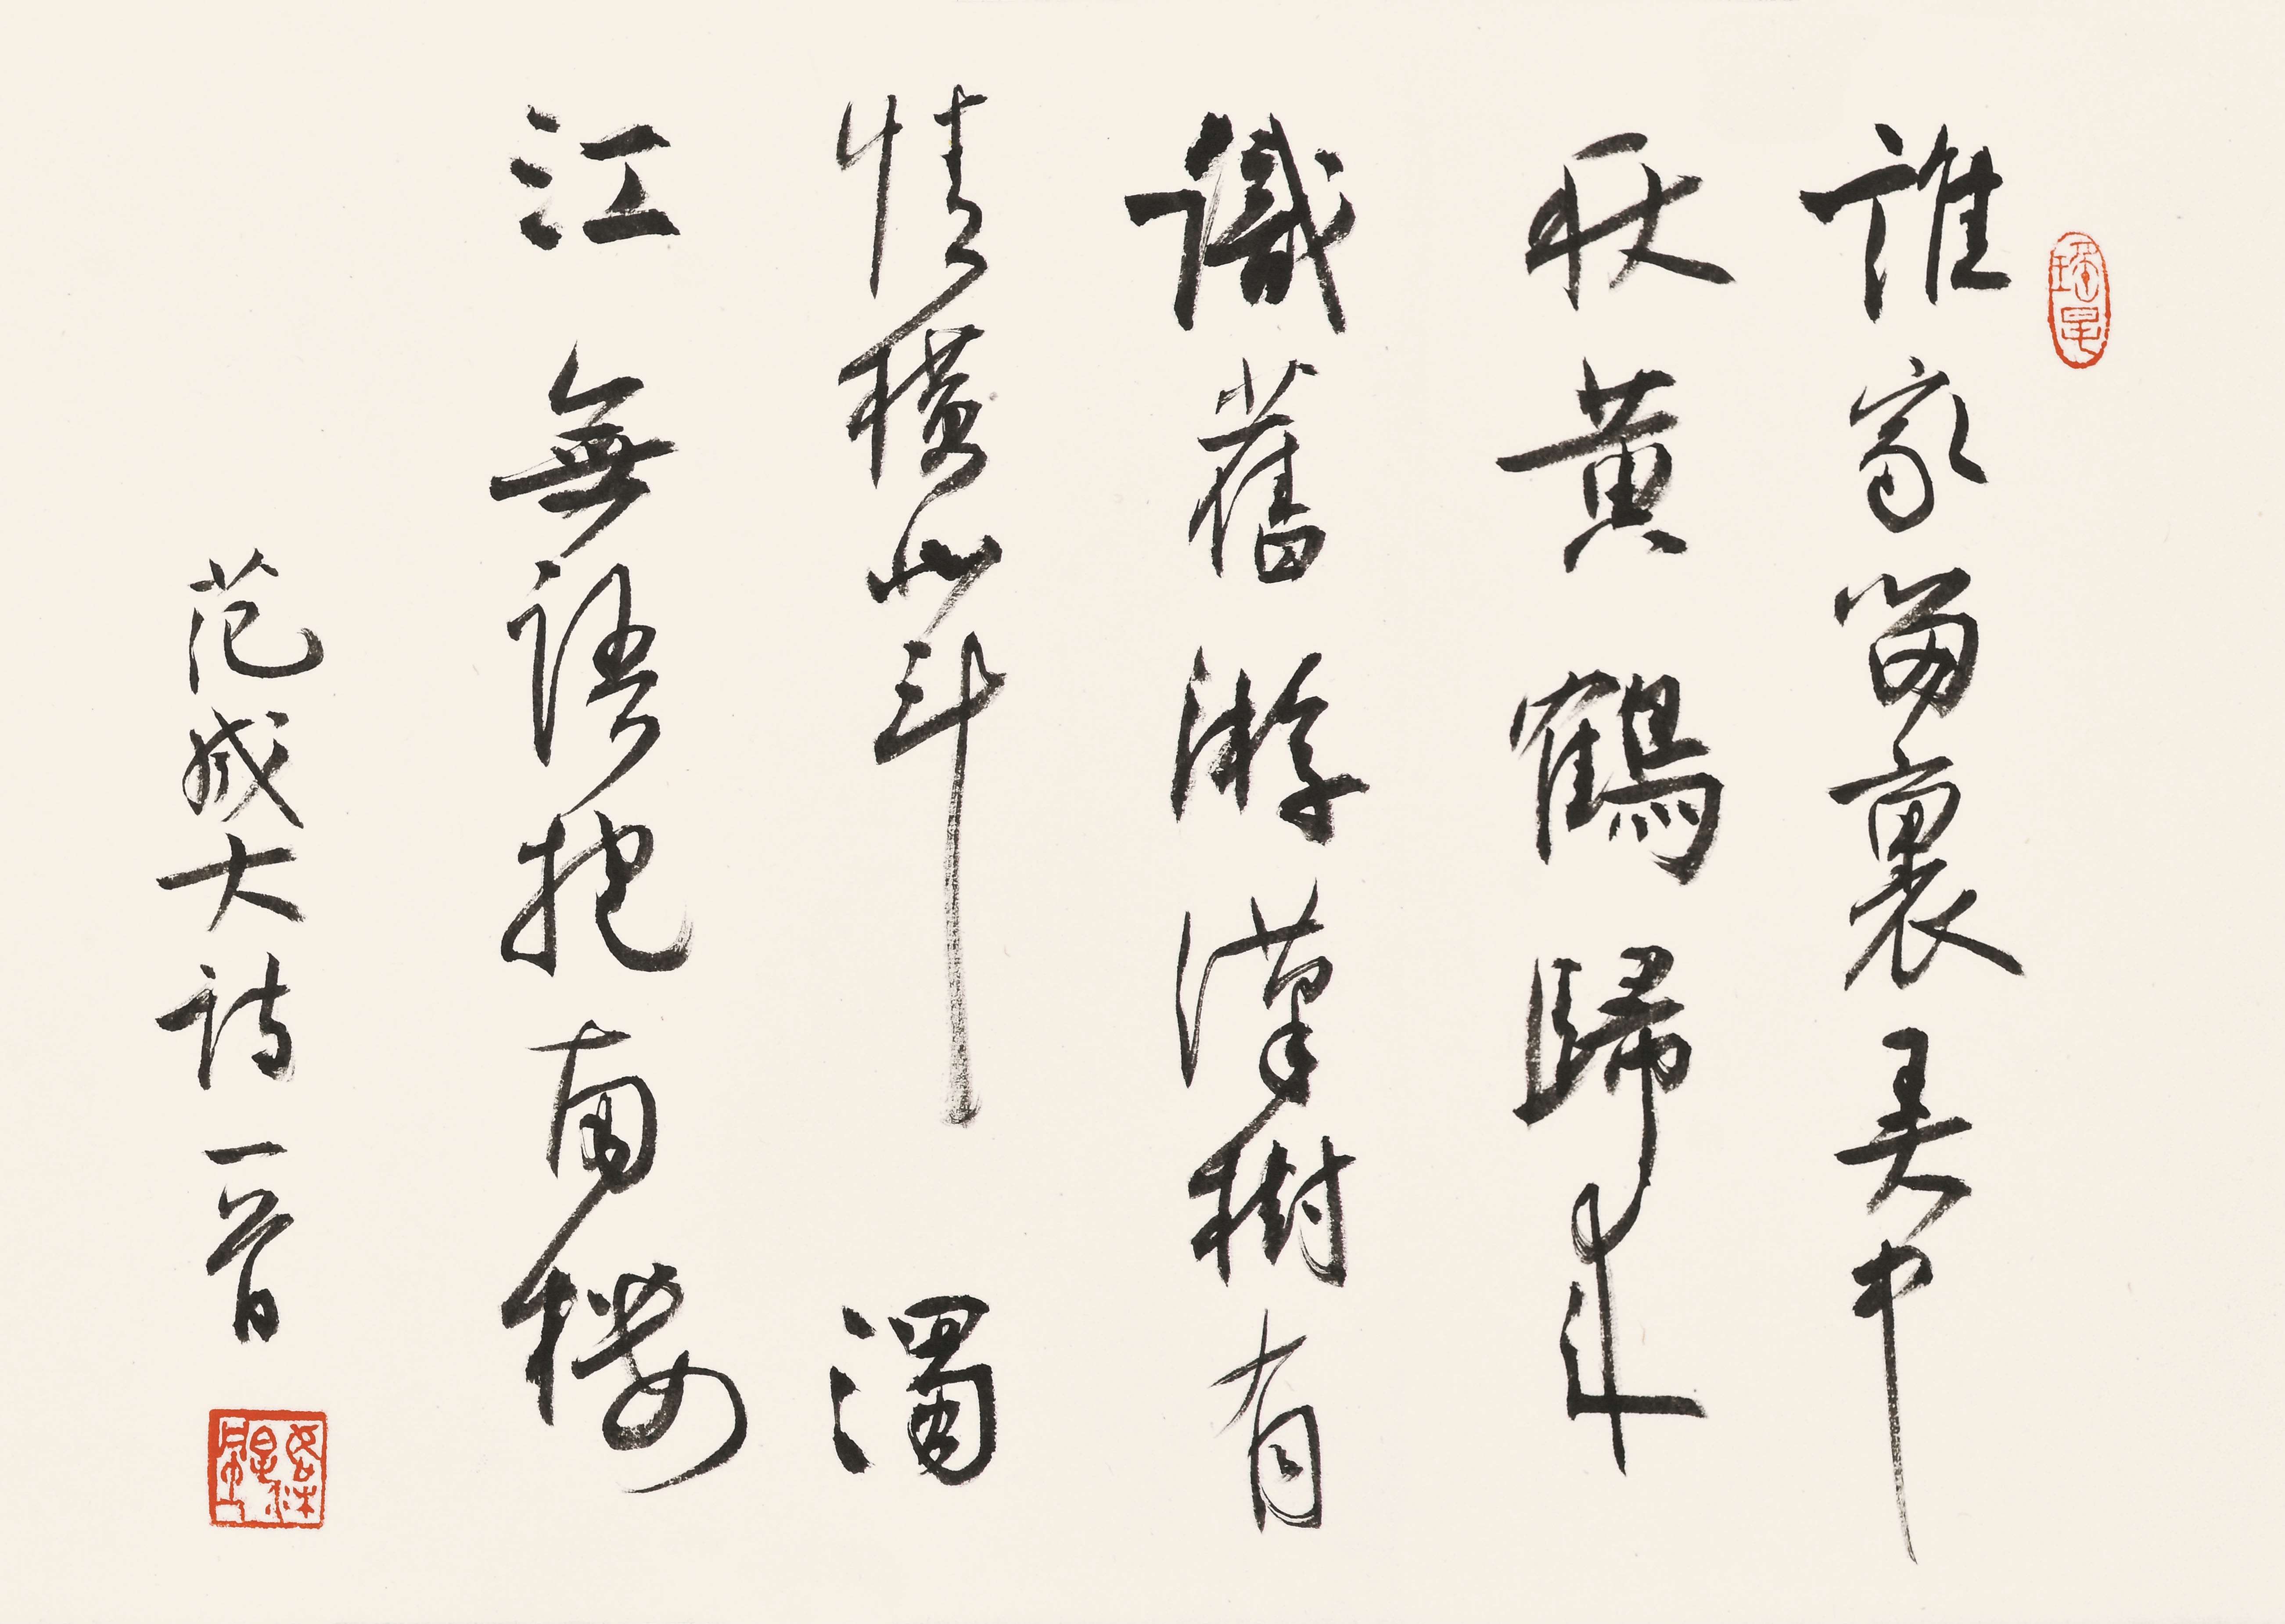 誰家笛裏弄中
秋黃鶴歸來
識舊游漢樹有
情橫北斗濁
江無語抱南樓
范成大詩一首